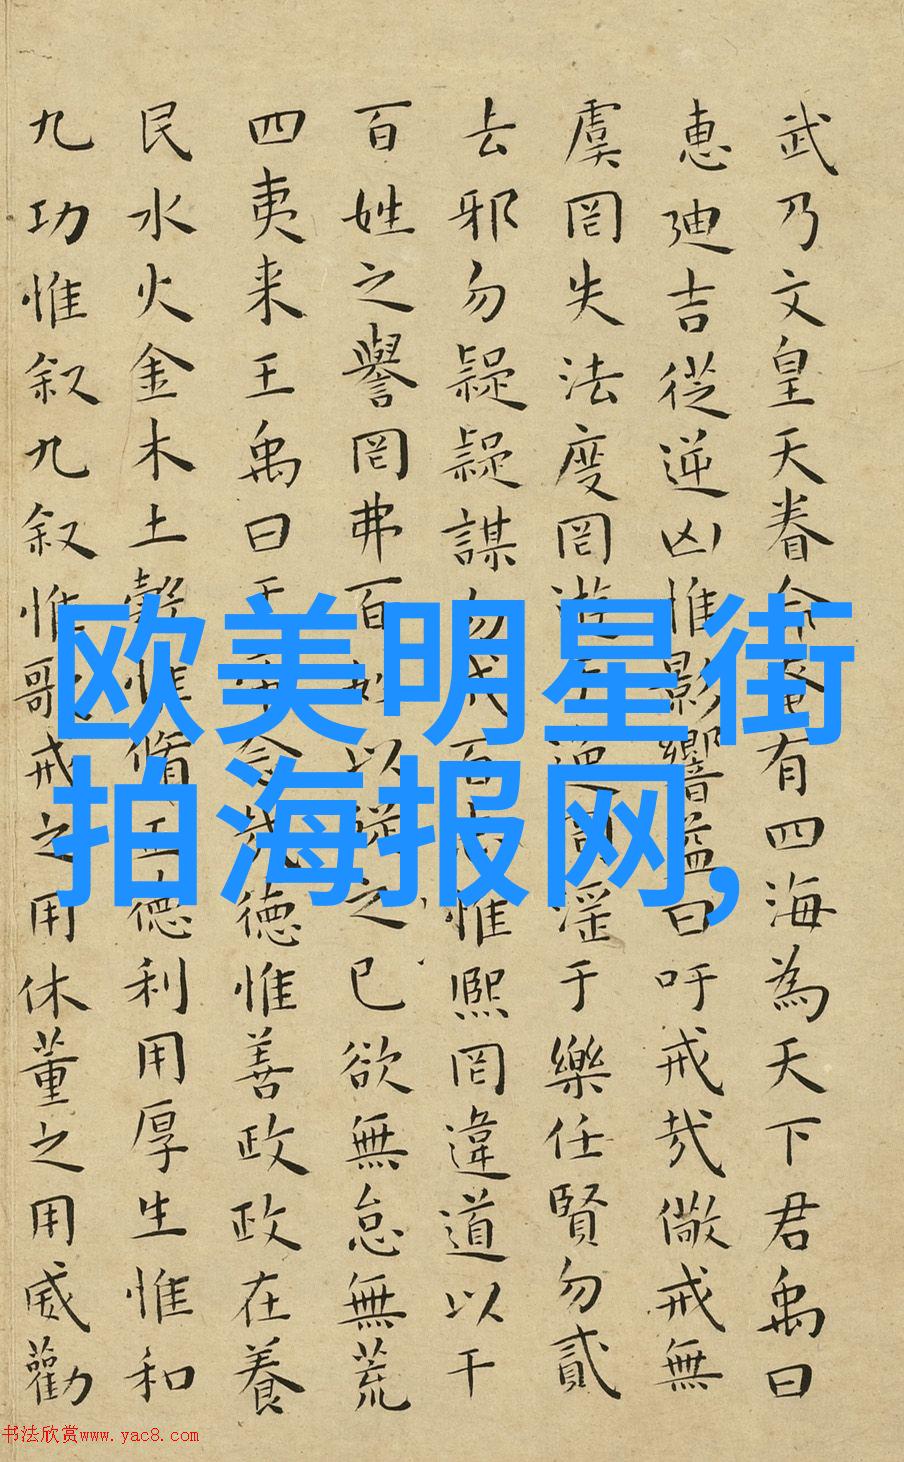 武乃文皇天眷命奄有四海為天下君禹曰
惠迪吉從逆凶惟影響益曰吁戒哉儆戒無
虞罔失法度罔遊于逸罔淫于樂任賢勿貳
去邪勿疑疑謀勿成百志惟熙罔違道以干
百姓之譽罔弗百姓以從之己欲無怠無荒
四夷来王禹曰於帝念哉德惟善政政在養
民水火金木土穀惟脩正德利用厚生惟和
九功惟叙九叙惟歌戒之用休董之用威勸
欧美明星街
拍海报网,
书法欣赏www.yac8.com